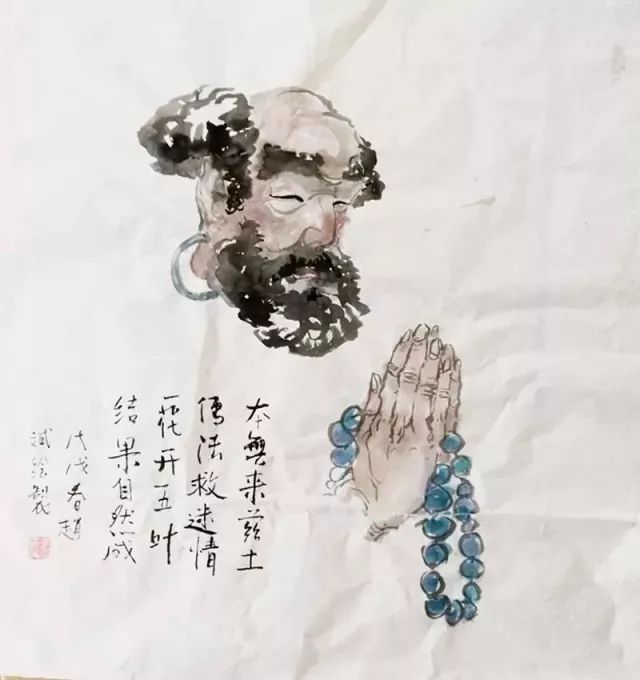 本無来兹土
傳法救迷情
一花开五叶
结果自然成
戊戌春趙
斌绘製